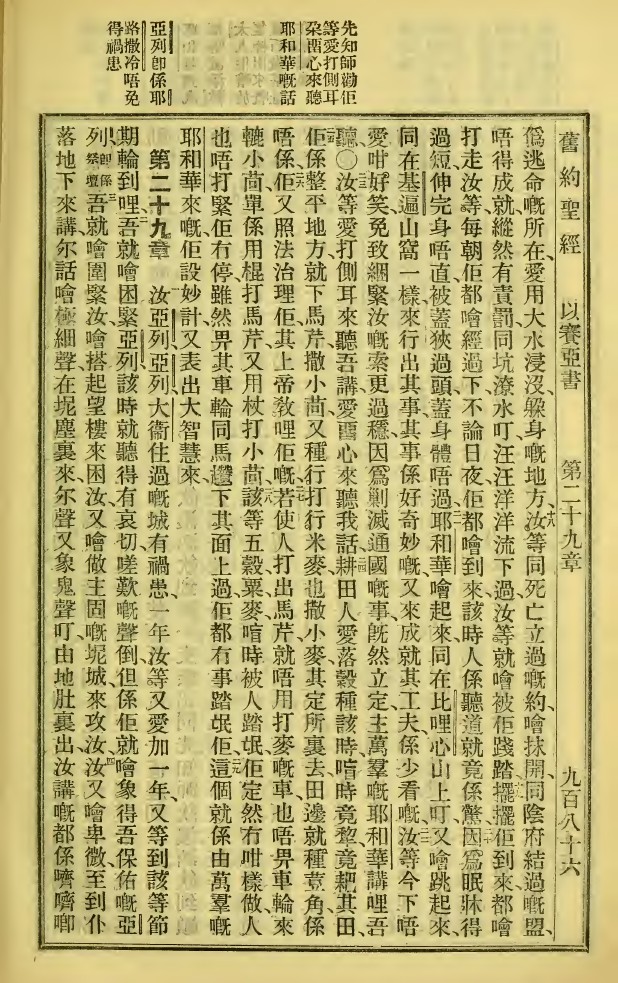 舊約聖經 以賽亞書 第二十九章 九百八十六
先知師勸佢
等愛打側耳
朶畱心來聽
耶和華嘅話
亞列卽係耶
路撒冷唔免
得禍患
爲逃命嘅所在、愛用大水浸沒躱身嘅地方、汝等同死亡立過嘅約、噲抹開、同陰府結過嘅盟、
唔得成就、縱然有責罰同坑潦水叮、汪汪洋洋流下過、汝等就噲被佢踐踏、擺擺佢到來、都噲
打走汝等、每朝佢都噲經過下、不論日夜、佢都噲到來、該時人係聽道就竟係驚、因爲眠牀得
過短、伸完身唔直、被蓋狹過頭、蓋身體唔過、耶和華噲起來、同在比哩心山上叮、又噲跳起來、
同在基遍山窩一樣、來行出其事、其事係好奇妙嘅、又來成就其工夫、係少看嘅、汝等今下唔
愛咁好笑、免致綑緊汝嘅索更過穩、因爲剿滅通國嘅事、旣然立定、主萬羣嘅耶和華講哩吾
聽、〇汝等愛打側耳來聽吾講、愛畱心來聽我話、耕田人愛落穀種該時、喑時竟犂竟耙其田、
佢係整平地方、就下馬芹、撒小茴、又種行打行米麥、也撒小麥其定所裏去、田邊就種荳角、係
唔係、佢又照法治理佢、其上帝敎哩佢嘅、若使人打出馬芹、就唔用打麥嘅車、也唔畀車輪來
轆小茴、單係用棍打馬芹、又用杖打小茴、該等五穀粟麥、喑時被人踏、氓佢定然冇咁樣做、人
也唔打緊佢冇停、雖然畀其車輪同馬䟎下其面上過、佢都冇事踏氓佢、這個就係由萬羣嘅
耶和華來嘅、佢設妙計、又表出大智慧來、
第二十九章 汝亞列、亞列、大衞住過嘅城、有禍患、一年汝等又愛加一年、又等到該等節
期輪到哩、吾就噲困緊亞列、該時就聽得有哀切嗟歎嘅聲、倒但係佢就噲象得吾保佑嘅亞
列、卽係祭壇吾就噲圍緊汝、噲搭起望樓來困汝、又噲做主固嘅坭城來攻汝、汝又噲卑微、至到仆
落地下來講、尔話噲極細聲、在坭塵裏來、尔聲又象鬼聲叮、由地肚裏出、汝講嘅都係嚌嚌唧